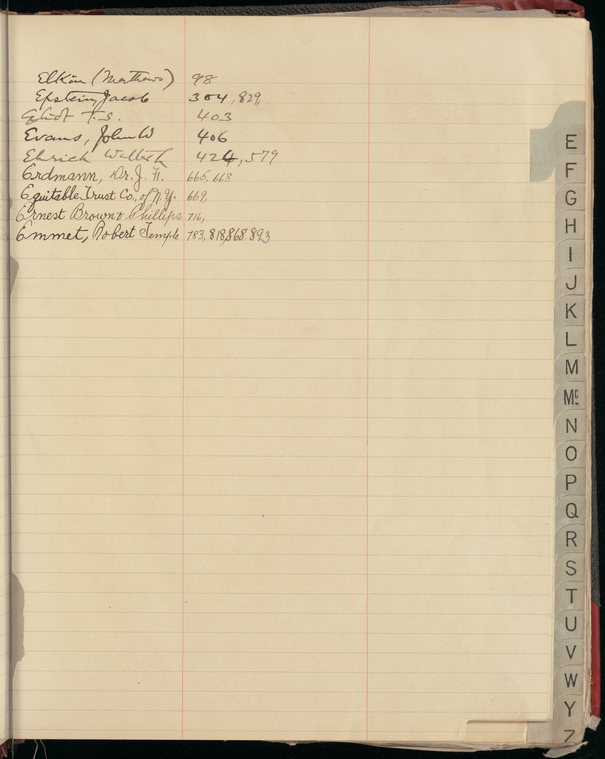 Elkin (Mathews) 98
Epstein, Jacob 304, 829
Eliot T.S. 403
Evans, John W 406
Ehrich Wallach 424, 579
Erdmann, Dr. J. F. 665, 668
Equitable Trust Co., of N.Y. 669,
Ernest Brown & Phillips 716,
Emmet, Robert Temple 783, 818, 868, 893
E
F
G
H
I
J
K
L
M
Mc
N
O
P
Q
R
S
T
U
V
W
Y
Z